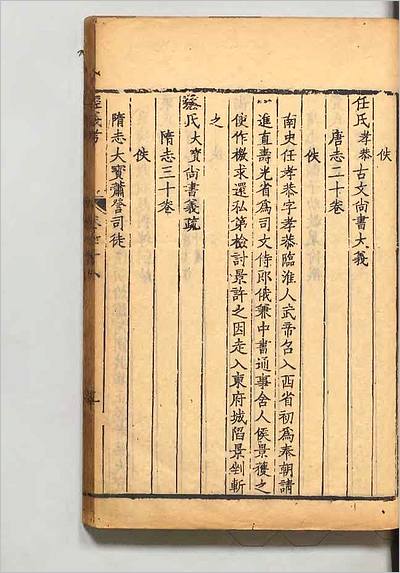 佚
任氏孝恭古文尚書大義
唐志二十卷
佚
南史任孝恭字孝恭臨淮人武帝召入西省初為奉朝請
進直壽光省為司文侍郎俄兼中書通事舍人侯景獲之
使作檄求還私第檢討景許之因走入東府城陷景剉斬
之
蔡氏大寶尚書義疏
隋志三十卷
佚
隋志大寶蕭詧司徒
經義考